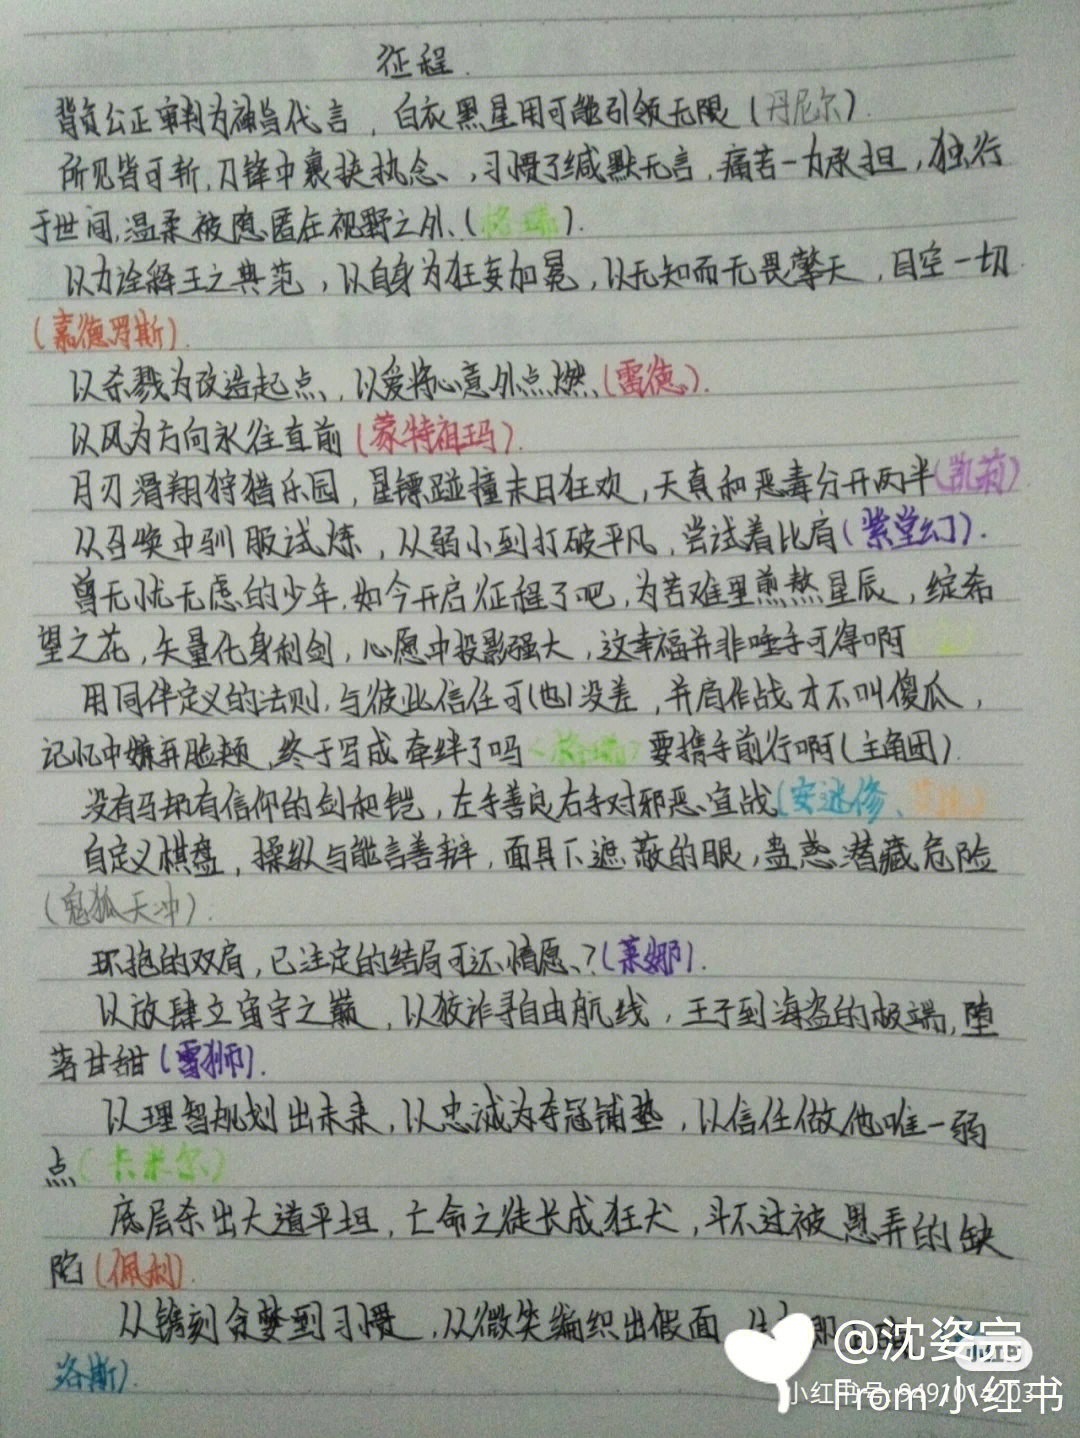 征程.
背负公正审判为神当代言，白衣黑星用可能引领无限(丹尼尔).
所见皆可斩，刀锋中裹挟执念，习惯了缄默无言，痛苦一力承担，独行
于世间，温柔被隐匿在视野之外(格瑞).
以力诠释王之典范，以自身为狂妄加冕，以无知而无畏擎天，目空一切
(嘉德罗斯).
以杀戮为改造起点，以爱将心意外点燃(雷德).
以风为方向永往直前(蒙特祖玛).
月刃滑翔狩猎乐园，星镖碰撞末日狂欢，天真和恶毒分开两半(凯莉)
从召唤中驯服试炼，从弱小到打破平凡，尝试着比肩(紫堂幻).
曾无忧无虑的少年，如今开启征程了吧，为苦难里煎熬星辰，绽希
望之花，矢量化身利剑，心愿中投影强大，这幸福并非唾手可得啊
用同伴定义的法则，与彼此信任可(也)没差，并肩作战才不叫傻瓜，
记忆中嫌弃脸颊，终于写成牵绊了吗<格瑞>要携手前行啊(主角团).
没有马却有信仰的剑和铠，左手善良右手对邪恶宣战(安迷修、
自定义棋盘，操纵与能言善辩，面具下遮蔽的眼，蛊惑潜藏危险
(鬼狐天冲).
环抱的双肩，已注定的结局可还情愿？(莱娜).
以放肆立宙宇之巅，以狡诈寻自由航线，王子到海盗的极端，堕
落甘甜(雷狮).
以理智规划出未来，以忠诚为夺冠铺垫，以信任做他唯一弱
点(卡米尔)
底层杀出大道平坦，亡命之徒长成狂犬，斗不过被愚弄的缺
陷(佩利).
从镌刻贪婪到习惯，从微笑编织出假面
洛斯).
@沈姿宣
小红书
小红书号:9491014203
From 小红书